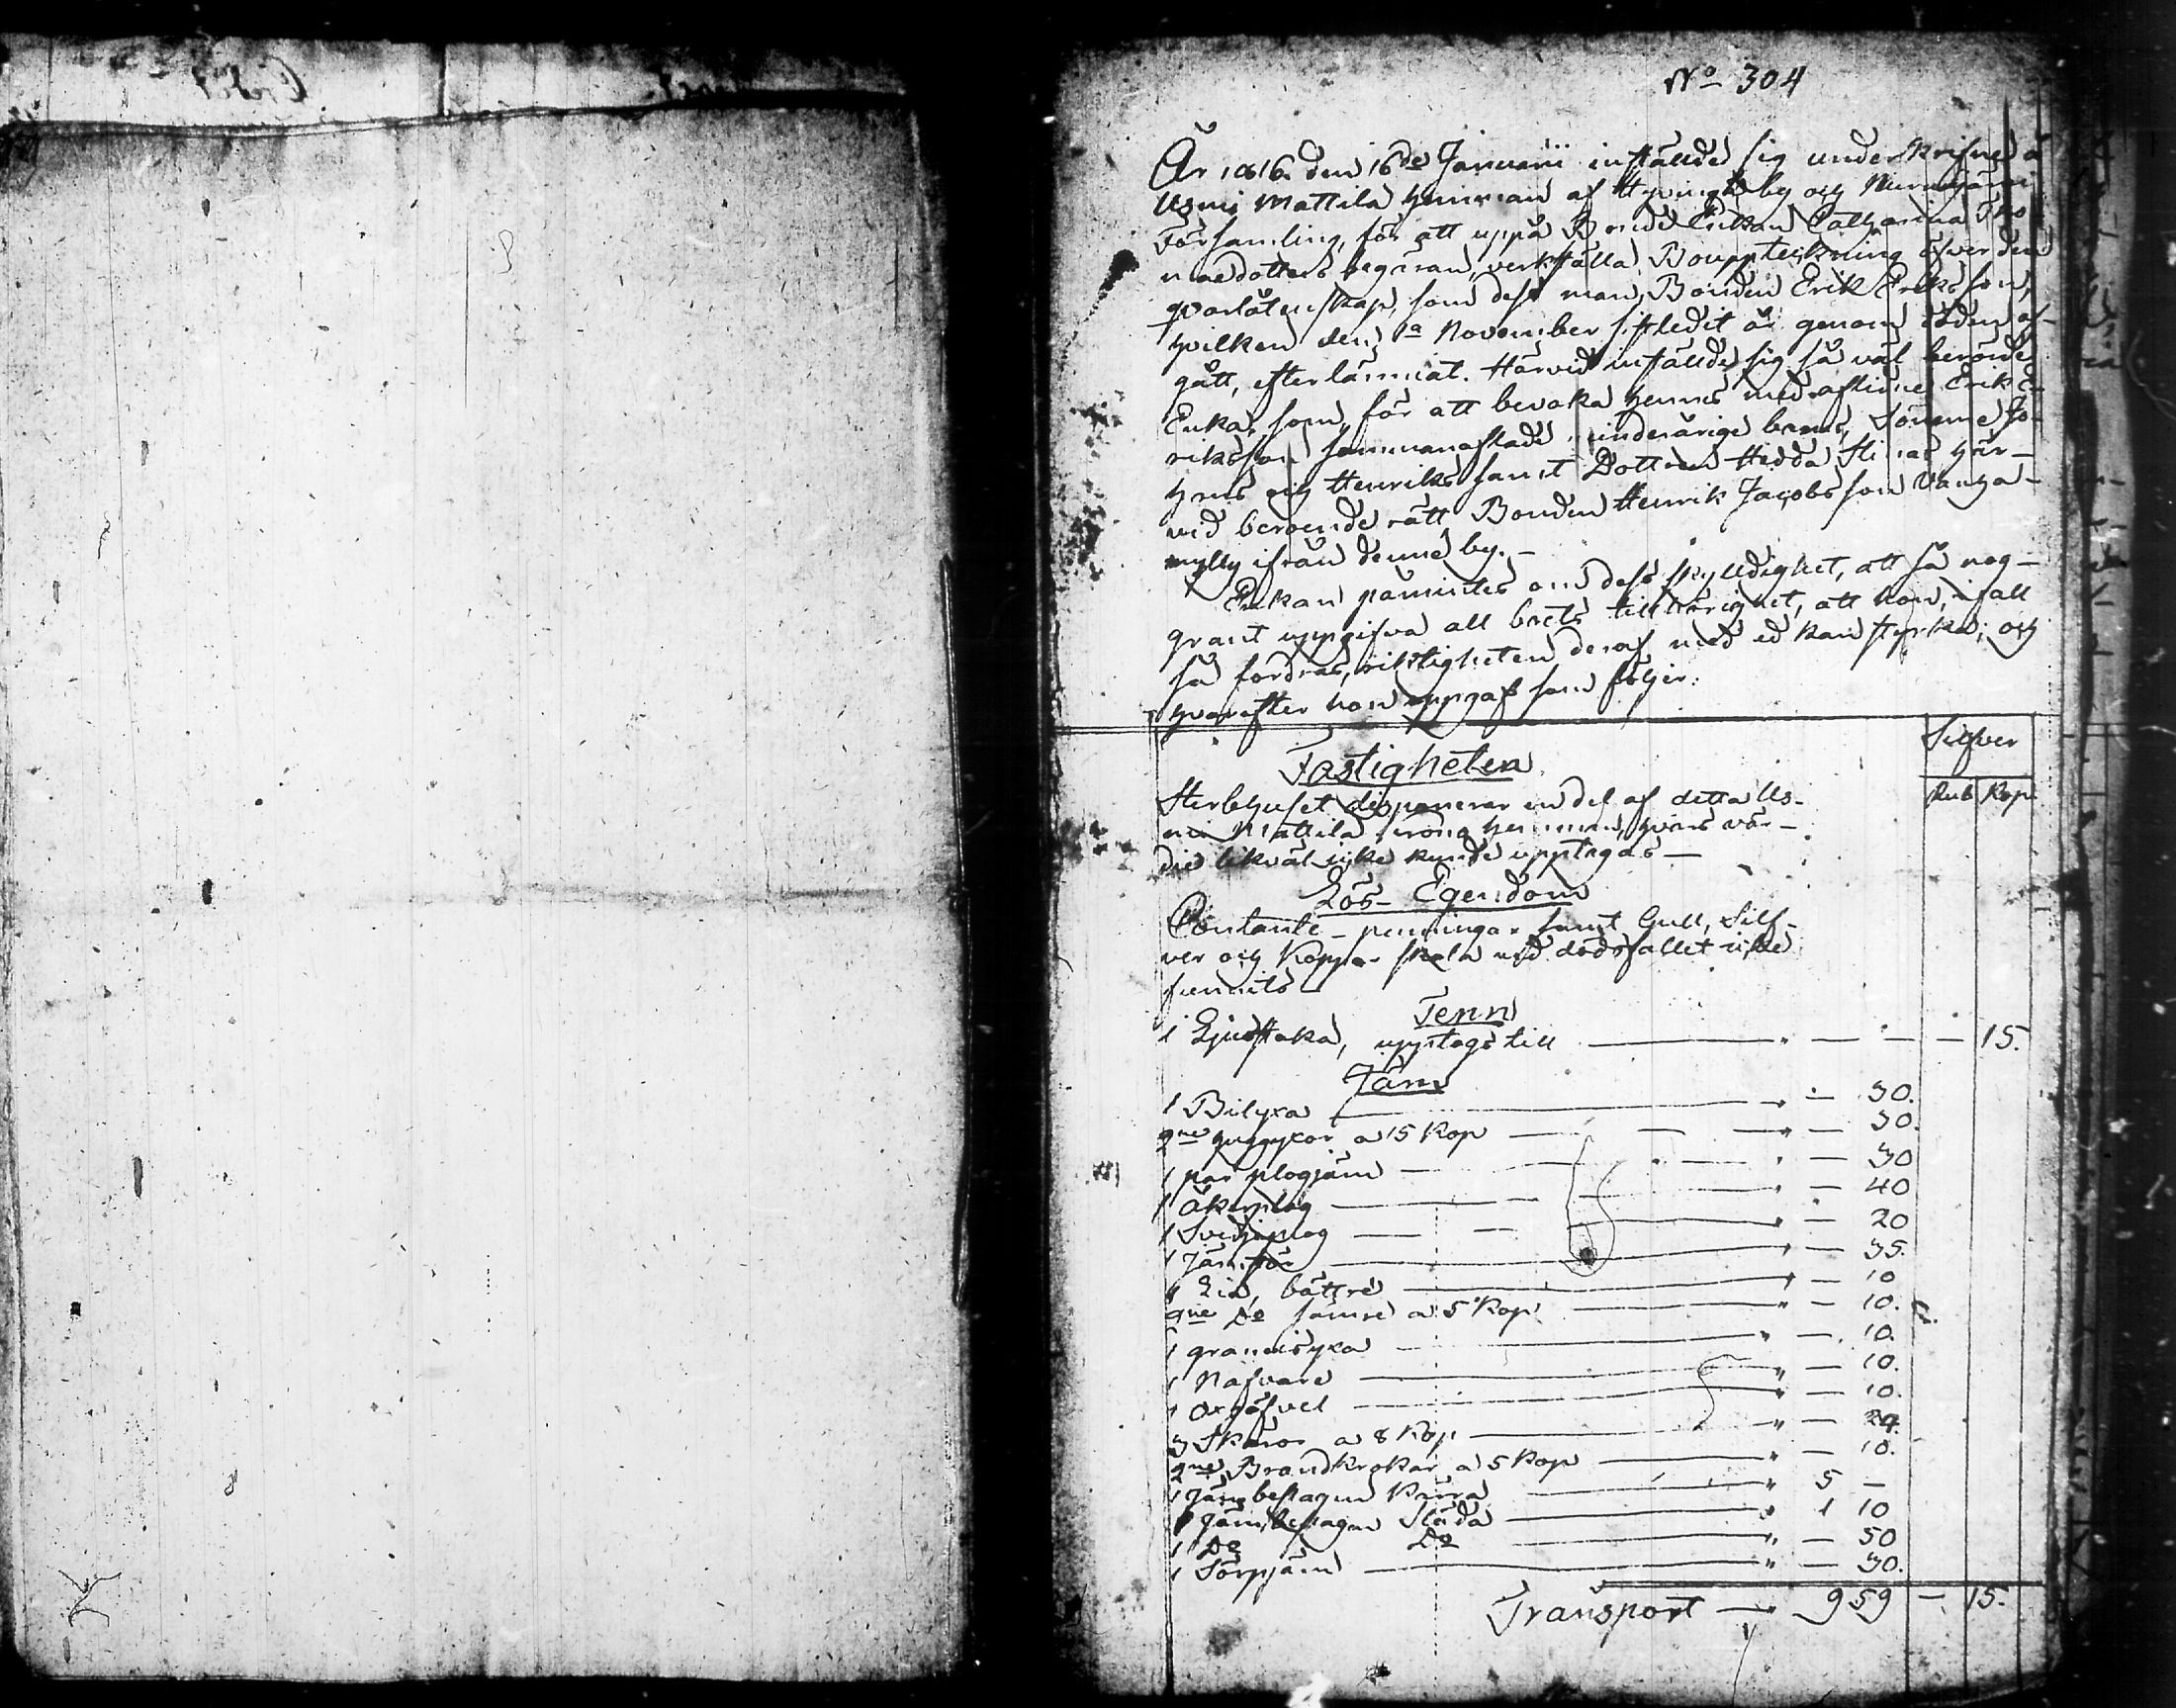 No 304
År 1816 den 16de Januarii inställde sig underskrifne å
Usmi Mattila hemman af Hyvinge by och Nurmijärvi
Församling, för att uppå Bonde Enkan Catharina Tho-
maedotters begäran, verkställa Bouppteckning öfver den
qvarlåtenskap, som dess man, Bonden Erik Eriksson,
hvilken den 1a November sistledit år genom döden af-
gått, efterlämnat. Härvid inställde sig så väl berörde
Enka, som, för att bevaka hennes med aflidne Erik E-
riksson sammanaflade minderårige barns, Sönerne Jo-
hans och Henriks samt Dottren Hedda Stinas här-
vid beroende rätt, Bonden Henrik Jacobsson Vanha-
mylly ifrån denne by. -
Enkan påmintes om dess skylldighet, att så nog-
grant uppgifva all boets tillhörighet, att hon, ifall
så fordras, riktigheten deraf med ed kan styrka; och
hvarefter hon uppgaf som följer:
Silfver
Rub Kop
Fastigheten
Sterbhuset disponerar en del af detta Us-
mi Mattila Krono hemman, hvars vär-
die likväl icke kunde upptagas —
Lös- Egendom
Contante - penningar samt Gull, Silf-
ver och Koppar skola vid dödsfallet icke
funnits
Tenn
1 Ljusstaka, upptogs till — — — 15.
Järn
1 Bilyxa — " — 30.
2ne huggyxor a 15 Kop — " — 30.
1 par plogjärn — " — 30
1 Åkerplog — " — 40
1 Svedjeplog — " — 20
1 Järnstör — " — 35.
1 Lia, bättre — " — 10
2ne Do sämre a 5 Kop — " — 10.
1 grannisyxa — " — 10.
1 Nafvare — " — 10.
1 — " — 10.
3 Skäror a 8 Kop — " — 24.
2ne Brandkrokar a 5 Kop — " — 10.
1 Järnbeslagen Kärra — " 5 —
1 Järnbeslagen Släda — " 1 10
1 Do Do — " — 50
1 Sörpjärn — " — 30.
Transport — 9 59 — 15.